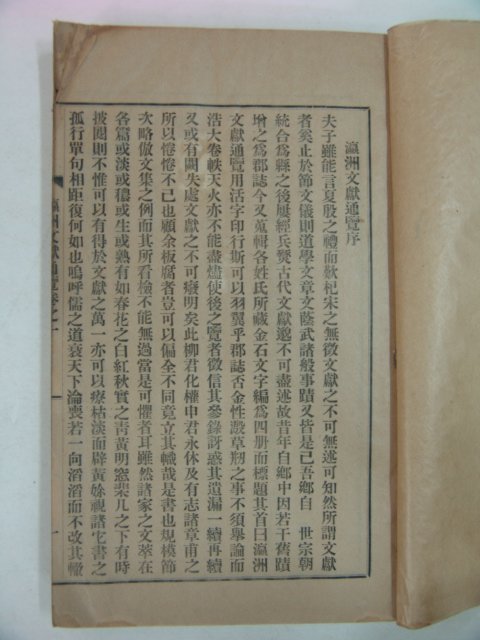 瀛洲文獻通覽序
夫子雖能言夏殷之禮而歎杞宋之無徵文獻之不可無述可知然所謂文獻
者奚止於節文儀則道學文章文蔭武諸般事蹟又皆是已吾鄕自 世宗朝
統合爲縣之後屢經兵燹古代文獻邈不可盡述故昔年自鄕中因若干舊蹟
增之爲郡誌今又蒐輯各姓氏所藏金石文字編爲四册而標題其首曰瀛洲
文獻通覽用活字印行斯可以羽翼乎郡誌否金性灎草刱之事不須擧論而
浩大卷帙天火亦不能盡燼使後之覽者徵信其參錄訝惑其遺漏一續再續
又或有闕失處文獻之不可癈明矣此柳君化權申君永休及有志諸章甫之
所以惓惓不已也顧余板腐者豈可以偏全不同竟立其幟哉是書也規模節
次略倣文集之例而其所看檢不能無過當是可懼者耳雖然諸家之文萃在
各篇或淡或穠或生或熟有如春花之白紅秋實之靑黃明窓棐几之下有時
披閱則不惟可以有得於文獻之萬一亦可以療枯淡而辟黃姝視諸它書之
孤行單句相距復何如也嗚呼儒之道衰天下淪喪若一向滔滔而不改其轍
瀛洲文獻通覽卷之一
一